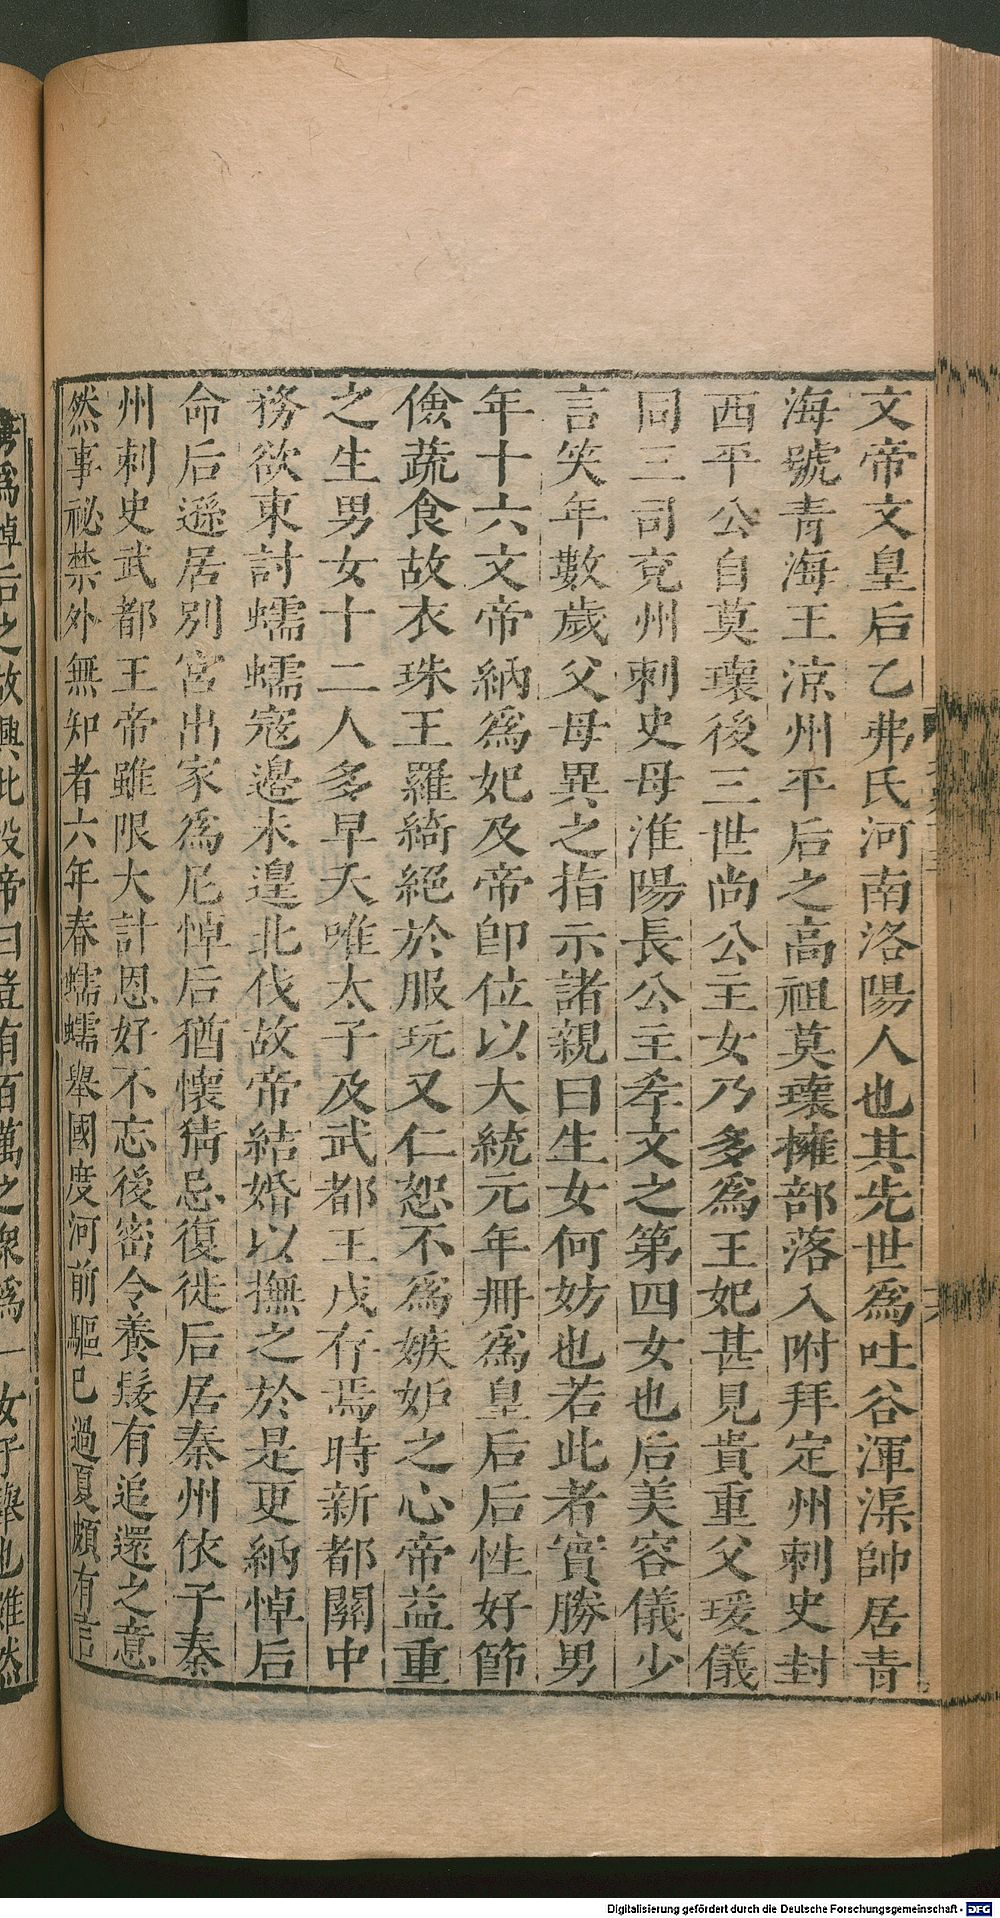 文帝文皇后乙弗氏河南洛陽人也其先世爲吐谷渾渠帥居青
海號青海王涼州平后之高祖莫瓌擁部落入附拜定州刺史封
西平公自莫瓌後三世尚公主女乃多爲王妃甚見貴重父瑗儀
同三司兗州刺史母淮陽長公主孝文之第四女也后美容儀少
言笑年數歲父母異之指示諸親曰生女何妨也若此者實勝男
年十六文帝納爲妃及帝卽位以大統元年冊爲皇后后性好節
儉蔬食故衣珠玉羅綺絕於服玩又仁恕不爲嫉妒之心帝益重
之生男女十二人多早夭唯太子及武都王戊存焉時新都關中
務欲東討蠕蠕寇邊未遑北伐故帝結婚以撫之於是更納悼后
命后遜居別宮出家爲尼悼后猶懷猜忌復徙后居秦州依子秦
州刺史武都王帝雖限大計恩好不忘後密令養髮有追還之意
然事祕禁外無知者六年春蠕蠕舉國度河前驅已過夏頗有言
爲悼后之故興此役帝曰豈有百萬之衆爲一女子舉也雖然
Digitalisierung gefördert durch die Deutsche Forschungsgemeinschaft - DFG